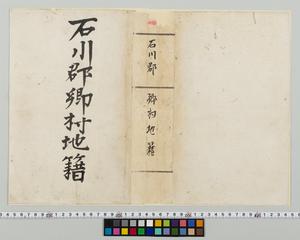 石川郡
郷村地籍
石川郡郷村地籍